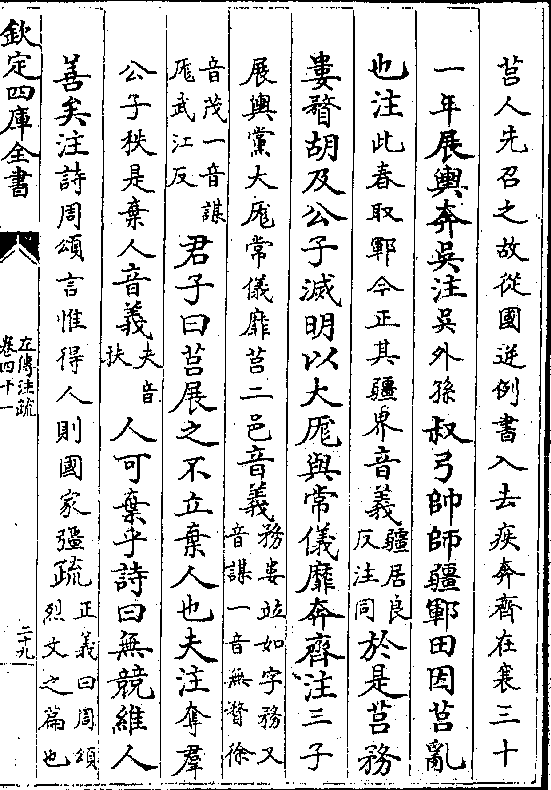 莒人先召之故從國逆例書入去疾奔齊在襄三十
一年展輿奔吳注吳外孫叔弓帥師疆鄆田因莒亂
也注此春取鄆今正其疆界音義疆居良反注同於是莒務
婁瞀胡及公子滅明以大厖與常儀靡奔齊注三子
展輿黨大厖常儀靡莒二邑音義務婁並如字務又音謀一音無瞀徐
音茂一音謀厖武江反君子曰莒展之不立棄人也夫注奪羣
公子秩是棄人音義夫音扶人可棄乎詩曰無競維人
善矣注詩周頌言惟得人則國家彊疏正義曰周頌烈文之篇也
欽定四庫全書
左傳注疏
卷四十一
二十九